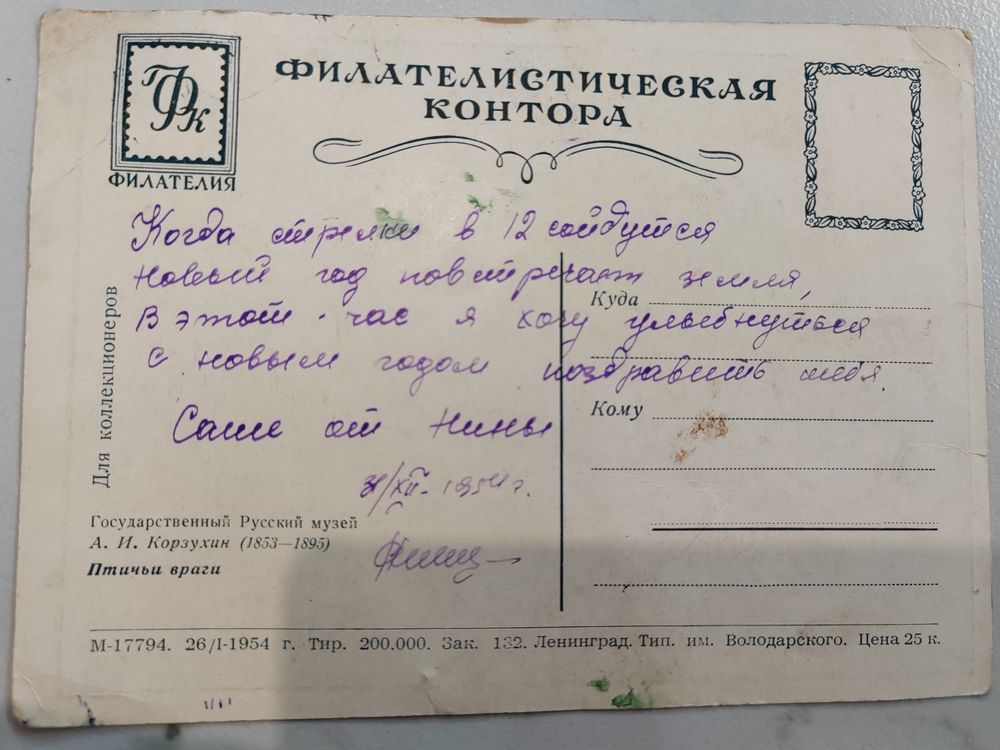 ФК
ФИЛАТЕЛИЯ
ФИЛАТЕЛИСТИЧЕСКАЯ
КОНТОРА
Когда стрелки в 12 сойдутся
Новый год повстречает земля,
В этот час я хочу улыбнуться
С новым годом поздравить тебя.
Саше от Нины
31/XII-1954 г.
Для коллекционеров
Государственный Русский музей
А. И. Корзухин (1853—1895)
Птичьи враги
Куда
Кому
М-17794. 26/I-1954 г. Тир. 200.000. Зак. 132. Ленинград. Тип. им. Володарского. Цена 25 к.